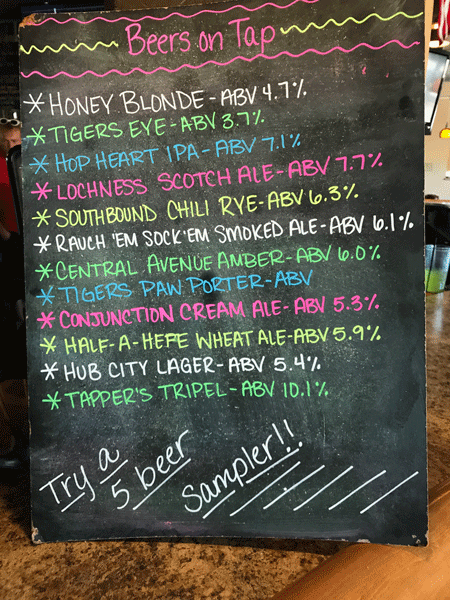 Beers on Tap
* HONEY BLONDE - ABV 4.7%
* TIGERS EYE - ABV 3.7%
* HOP HEART IPA - ABV 7.1%
* LOCHNESS SCOTCH ALE - ABV 7.7%
* SOUTHBOUND CHILI RYE - ABV 6.3%
* RAUCH 'EM SOCK 'EM SMOKED ALE - ABV 6.1%
* CENTRAL AVENUE AMBER - ABV 6.0%
* TIGERS PAW PORTER - ABV
* CONJUNCTION CREAM ALE - ABV 5.3%
* HALF-A-HEFE WHEAT ALE - ABV 5.9%
* HUB CITY LAGER - ABV 5.4%
* TAPPER'S TRIPEL - ABV 10.1%
Try a
5 beer
Sampler!!